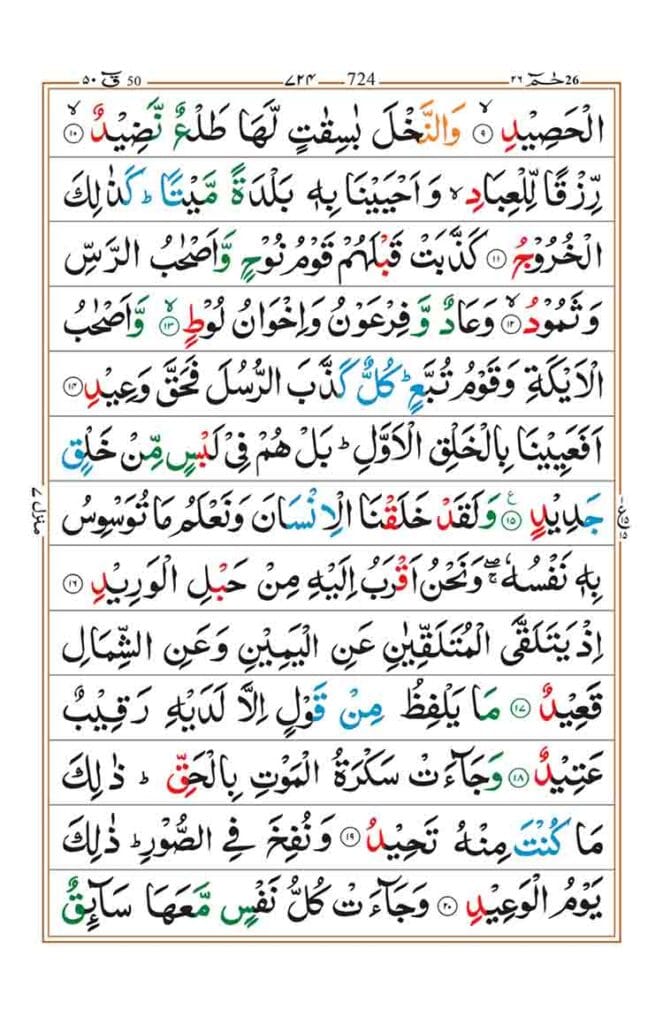 50 قٓ ۵۰ ۷۲۴ 724 26 حٰمٓ ۲۶
الْحَصِيْدِ ۙ‏﴿۹﴾ وَالنَّخْلَ بٰسِقٰتٍ لَّهَا طَلْعٌ نَّضِيْدٌ ۙ‏﴿۱۰﴾
رِّزْقًا لِّلْعِبَادِ ۙ وَاَحْيَيْنَا بِهٖ بَلْدَةً مَّيْتًا ؕ كَذٰلِكَ
الْخُرُوْجُ ﴿۱۱﴾ كَذَّبَتْ قَبْلَهُمْ قَوْمُ نُوْحٍ وَّاَصْحٰبُ الرَّسِّ
وَثَمُوْدُ ۙ‏﴿۱۲﴾ وَعَادٌ وَّفِرْعَوْنُ وَاِخْوَانُ لُوْطٍ ۙ‏﴿۱۳﴾ وَّاَصْحٰبُ
الْاَيْكَةِ وَقَوْمُ تُبَّعٍ ؕ كُلٌّ كَذَّبَ الرُّسُلَ فَحَقَّ وَعِيْدِ ﴿۱۴﴾
اَفَعَيِيْنَا بِالْخَلْقِ الْاَوَّلِ ؕ بَلْ هُمْ فِىْ لَبْسٍ مِّنْ خَلْقٍ
جَدِيْدٍ ﴿۱۵﴾ وَلَقَدْ خَلَقْنَا الْاِنْسَانَ وَنَعْلَمُ مَا تُوَسْوِسُ
بِهٖ نَفْسُهٗ ۖۚ وَنَحْنُ اَقْرَبُ اِلَيْهِ مِنْ حَبْلِ الْوَرِيْدِ ﴿۱۶﴾
اِذْ يَتَلَقَّى الْمُتَلَقِّيٰنِ عَنِ الْيَمِيْنِ وَعَنِ الشِّمَالِ
قَعِيْدٌ ﴿۱۷﴾ مَا يَلْفِظُ مِنْ قَوْلٍ اِلَّا لَدَيْهِ رَقِيْبٌ
عَتِيْدٌ ﴿۱۸﴾ وَجَآءَتْ سَكْرَةُ الْمَوْتِ بِالْحَقِّ ؕ ذٰلِكَ
مَا كُنْتَ مِنْهُ تَحِيْدُ ﴿۱۹﴾ وَنُفِخَ فِى الصُّوْرِ ؕ ذٰلِكَ
يَوْمُ الْوَعِيْدِ ﴿۲۰﴾ وَجَآءَتْ كُلُّ نَفْسٍ مَّعَهَا سَآئِقٌ
منزل ۷